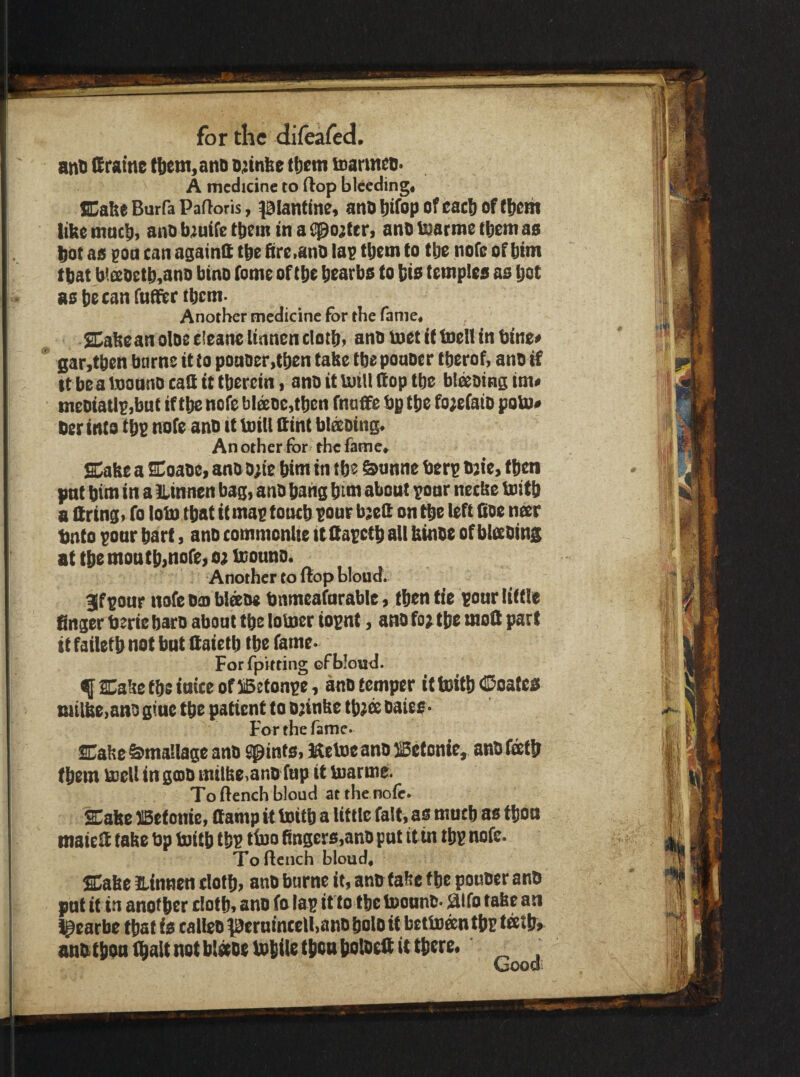 for the difeafed.
and ſtraine them,and drinke them warmed.
A medicine to ſtop bleeding.
Take Burſa Paſtoris, Plantine, and hiſop of each of them
like much, and bruiſe them in a Morter, and warme them as
hot as you can againſt the fire,and lay them to the noſe of him
that bleedeth,and bind ſome of the hearbs to his temples as hot
as he can ſuffer them.
Another medicine for the ſame.
Take an olde cleane linnen cloth, and wet it well in vine-
gar,then burne it to pouder,then take the pouder therof, and if
it be a wound caſt it therein, and it will ſtop the bleeding im-
mediatly,but if the noſe bleede,then ſnuffe vp the foreſaid pow-
der into thy noſe and it will ſtint bleeding.
An other for the ſame.
Take a Toade, and drie him in the Sunne very drie, then
put him in a Linnen bag, and hang him about your necke with
a ſtring, ſo low that it may touch your breſt on the left ſide neer
vnto your hart, and commonlie it ſtayeth all kinde of bleeding
at the mouth,noſe, or wound.
Another to ſtop bloud.
If your noſe doo bleede vnmeaſurable, then tie your little
finger verie hard about the lower ioynt, and for the moſt part
it faileth not but ſtaieth the ſame.
For ſpitting of bloud.
¶ Take the iuice of Betonye, and temper it with Goates
milke,and giue the patient to drinke three daies.
For the ſame.
Take Smallage and Mints, Rewe and Betonie, and ſeeth
them well in good milke,and ſup it warme.
To ſtench bloud at the noſe.
Take Betonie, ſtamp it with a little ſalt, as much as thou
maieſt take vp with thy two fingers,and put it in thy noſe.
To ſtench bloud.
Take Linnen cloth, and burne it, and take the pouder and
put it in another cloth, and ſo lay it to the wound. Alſo take an
Hearbe that is called Peruincell,and hold it between thy teeth,
and thou ſhalt not bleede while thou holdeſt it there.
Good